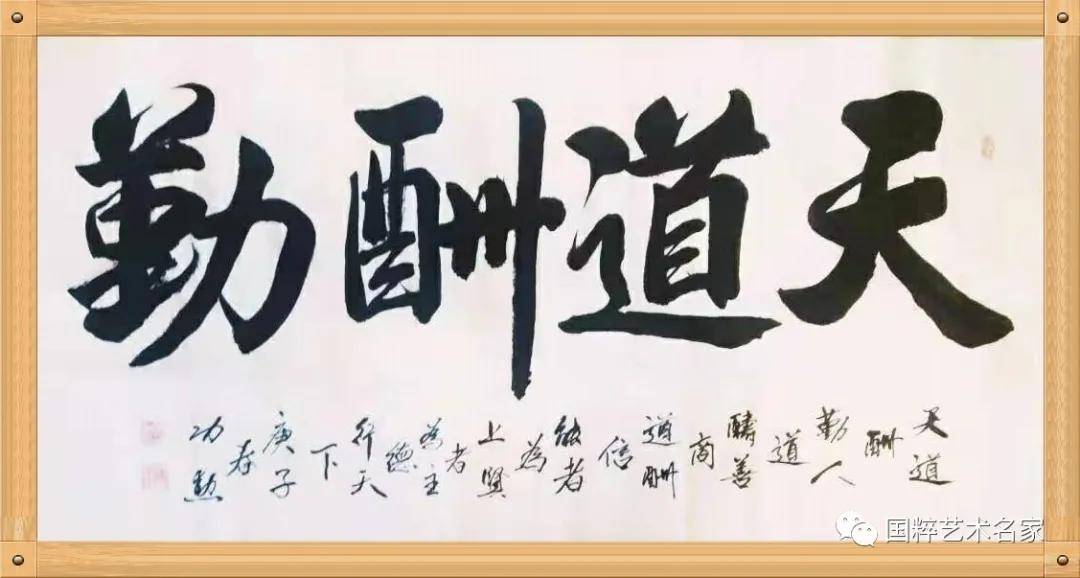 天道酬勤
天道
酬
勤人
道
醻善
商
道酬
信
能者
為
上賢
者
為主
德
行天
下
庚子
春
功勳
国粹艺术名家